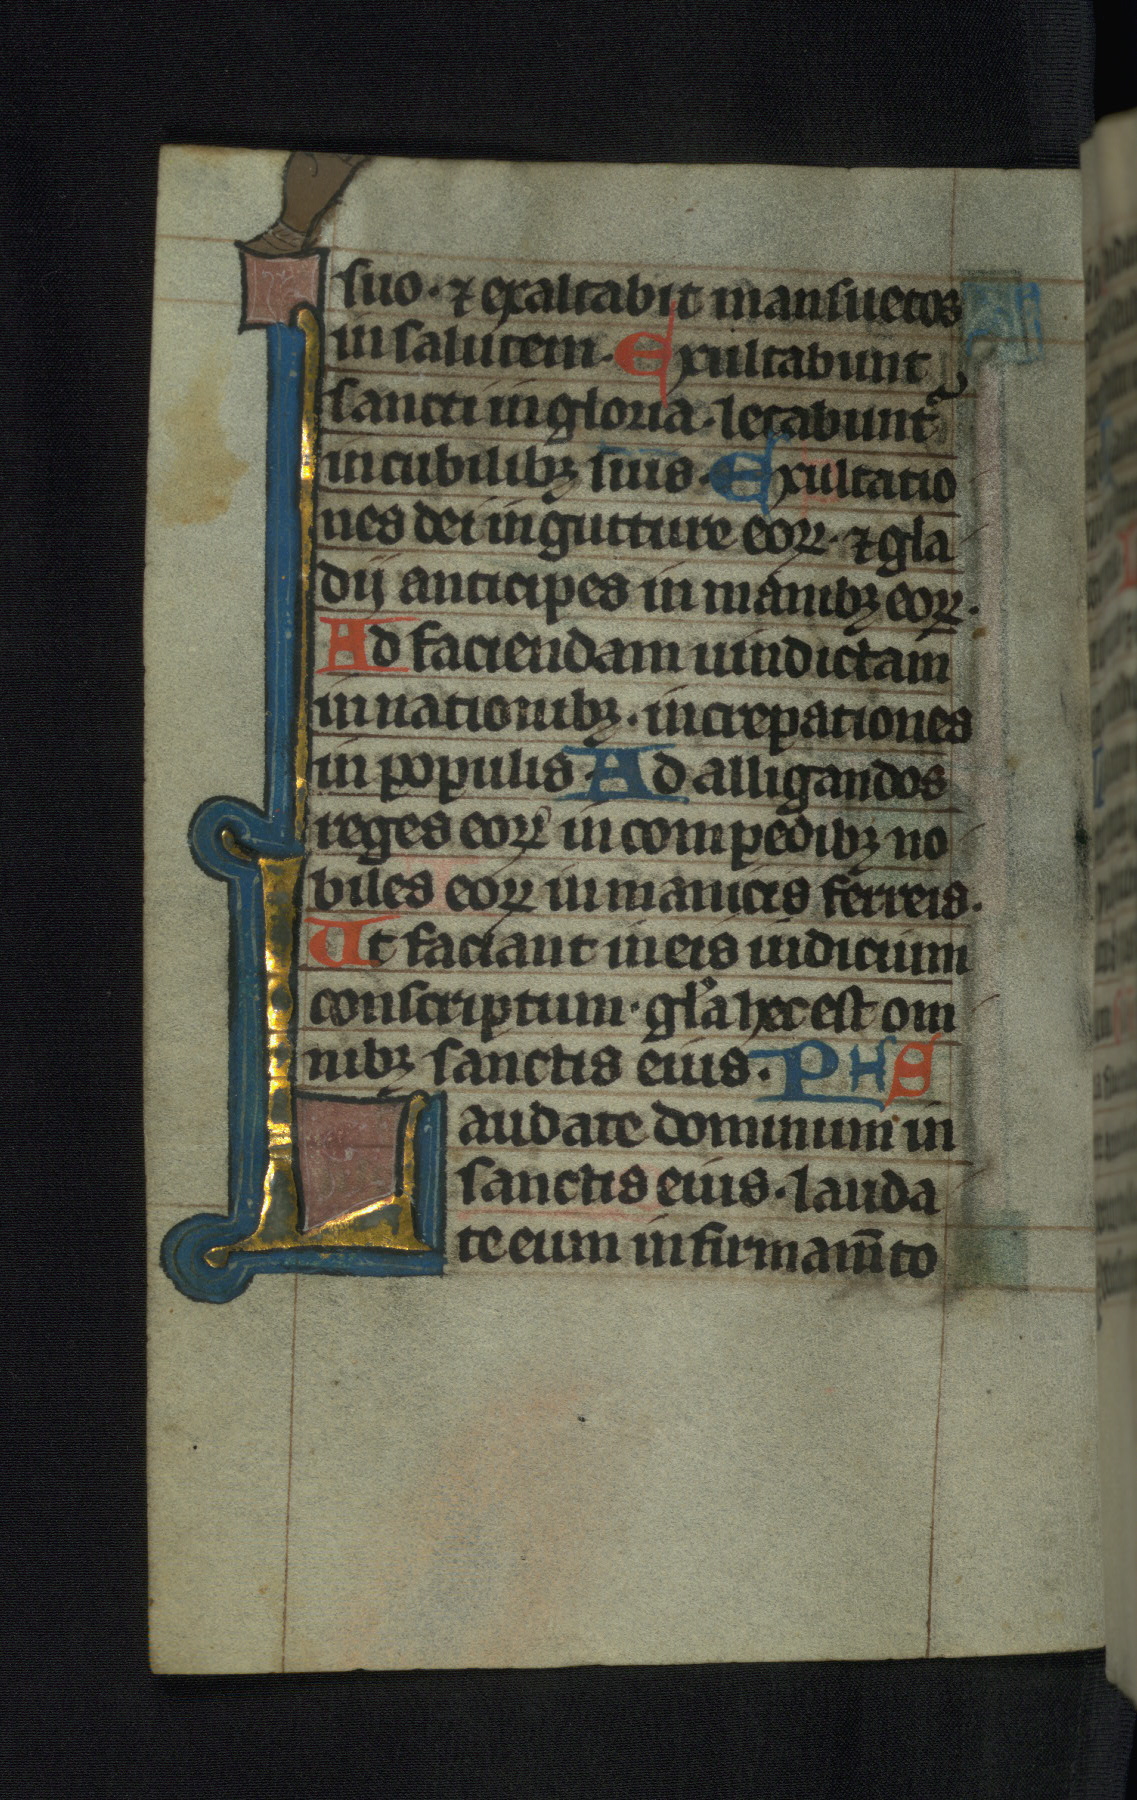 suo · ⁊ exaltabit mansuetos
in salutem · Exultabunt
sancti in gloria · letabunt᷑
in cubilibꝫ suis · Exultatio
nes dei in gutture eoꝝ · ⁊ gla
dij ancicipes in manibꝫ eoꝝ ·
Ad faciendam uindictam
in nationibꝫ · increpationes
in populis · Ad alligandos
reges eoꝝ in compedibꝫ no
biles eoꝝ in manicis ferreis ·
Ut faciant in eis iudicium
conscriptum · gl'a hec est om
nibꝫ sanctis eius · PHS
Laudate dominum in
sanctis eius · lauda
te eum in firmam̅to